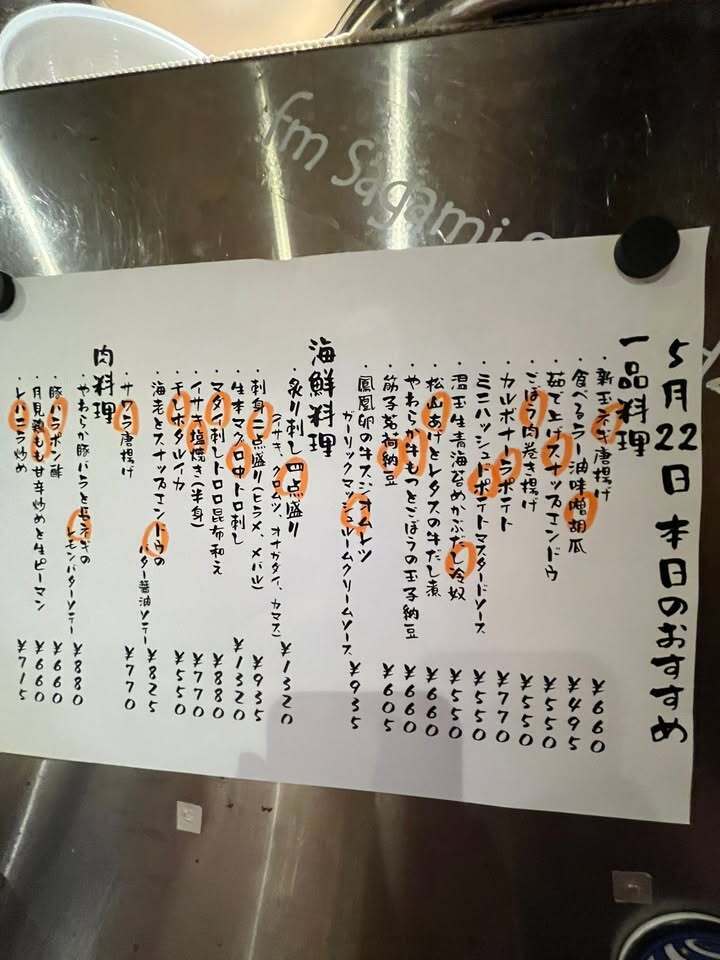 fm Sagami
5月22日 本日のおすすめ
一品料理
・新玉ネギ唐揚げ ¥660
・食べるラー油味噌胡瓜 ¥495
・茹で上げスナップエンドウ ¥550
・ごぼう肉巻き揚げ ¥550
・カルボナーラポテト ¥770
・ミニハッシュドポテトマスタードソース ¥550
・温玉生青海苔めかぶだし冷奴 ¥550
・松山あげとレタスの牛だし煮 ¥660
・やわらか牛もつとごぼうの玉子納豆 ¥660
・筋子茗荷納豆 ¥605
・鳳凰卵の牛スジオムレツ
ガーリックマッシュルームクリームソース ¥935
海鮮料理
・炙り刺し四点盛り
(イサキ、クロムツ、オナガダイ、カマス) ¥1320
・刺身二点盛り(ヒラメ、メバル) ¥935
・生本マグロ中トロ刺し ¥1320
・マダイ刺しトロロ昆布和え ¥880
・イサキ塩焼き(半身) ¥770
・干しホタルイカ ¥550
・海老とスナップエンドウの
バター醤油ソテー ¥825
・サワラ唐揚げ ¥770
肉料理
・やわらか豚バラと玉ネギの
レモンバターソテー ¥880
・豚バラポン酢 ¥660
・月見鶏もも甘辛炒めと生ピーマン ¥660
・レバニラ炒め ¥715